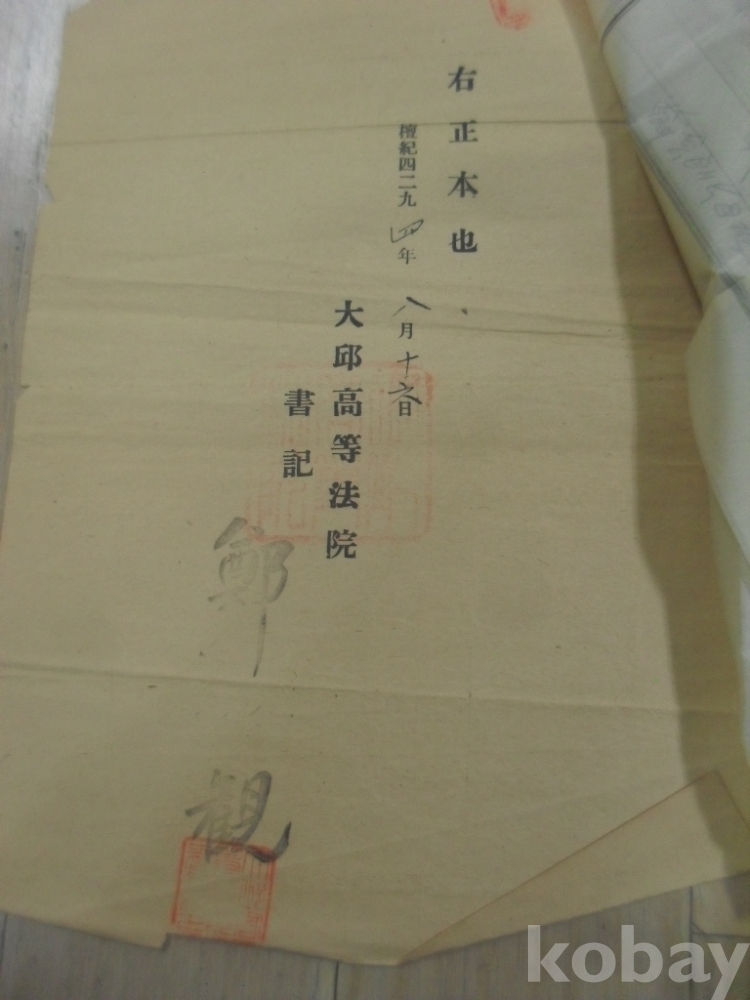 右正本也
檀紀四二九四年八月十六日
大邱高等法院
書記
鄭觀
kobay